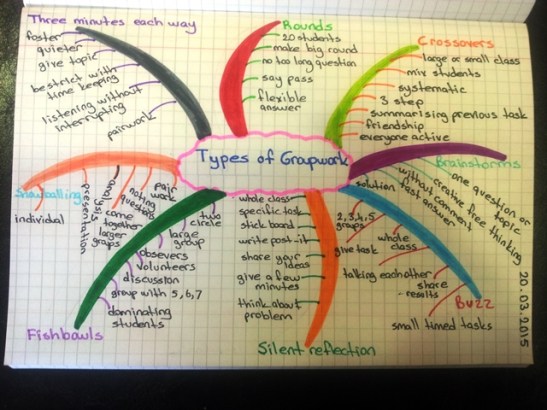 Three minutes each way
foster
quieter
give topic
be strict with
time keeping
listening without
interrupting
pairwork
Rounds
20 students
make big round
no too long question
say pass
flexible
answer
Crossovers
large or small class
mix students
systematic
3 step
summarising previous task
friendship
everyone active
Types of Groupwork
Brainstorms
one question or
topic
creative free thinking
without comment
fast answer
solution
Snowballing
individual
pair
work
noting
questions
come
together
larger
groups
analysis
presentation
Fishbowls
two
circle
large
group
obsevers
volunteers
discussion
group with 5,6,7
dominating
students
Silent reflection
whole class
specific task
stick board
write post-it
share your
ideas
give a few
minutes
think about
problem
Buzz
2,3,4,5
groups
whole
class
give task
talking eachother
share
results
small timed tasks
20.03.2015